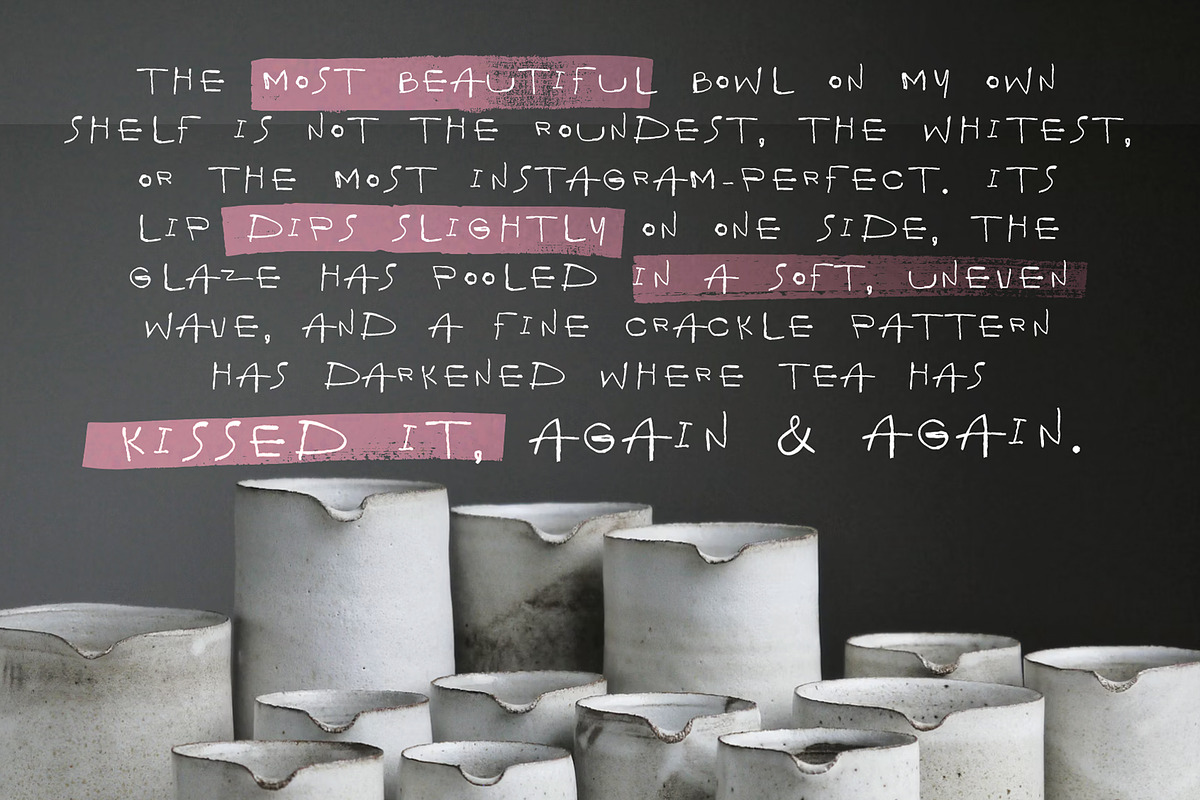 THE MOST BEAUTIFUL BOWL ON MY OWN
SHELF IS NOT THE ROUNDEST, THE WHITEST,
OR THE MOST INSTAGRAM-PERFECT. ITS
LIP DIPS SLIGHTLY ON ONE SIDE, THE
GLAZE HAS POOLED IN A SOFT, UNEVEN
WAVE, AND A FINE CRACKLE PATTERN
HAS DARKENED WHERE TEA HAS
KISSED IT, AGAIN & AGAIN.